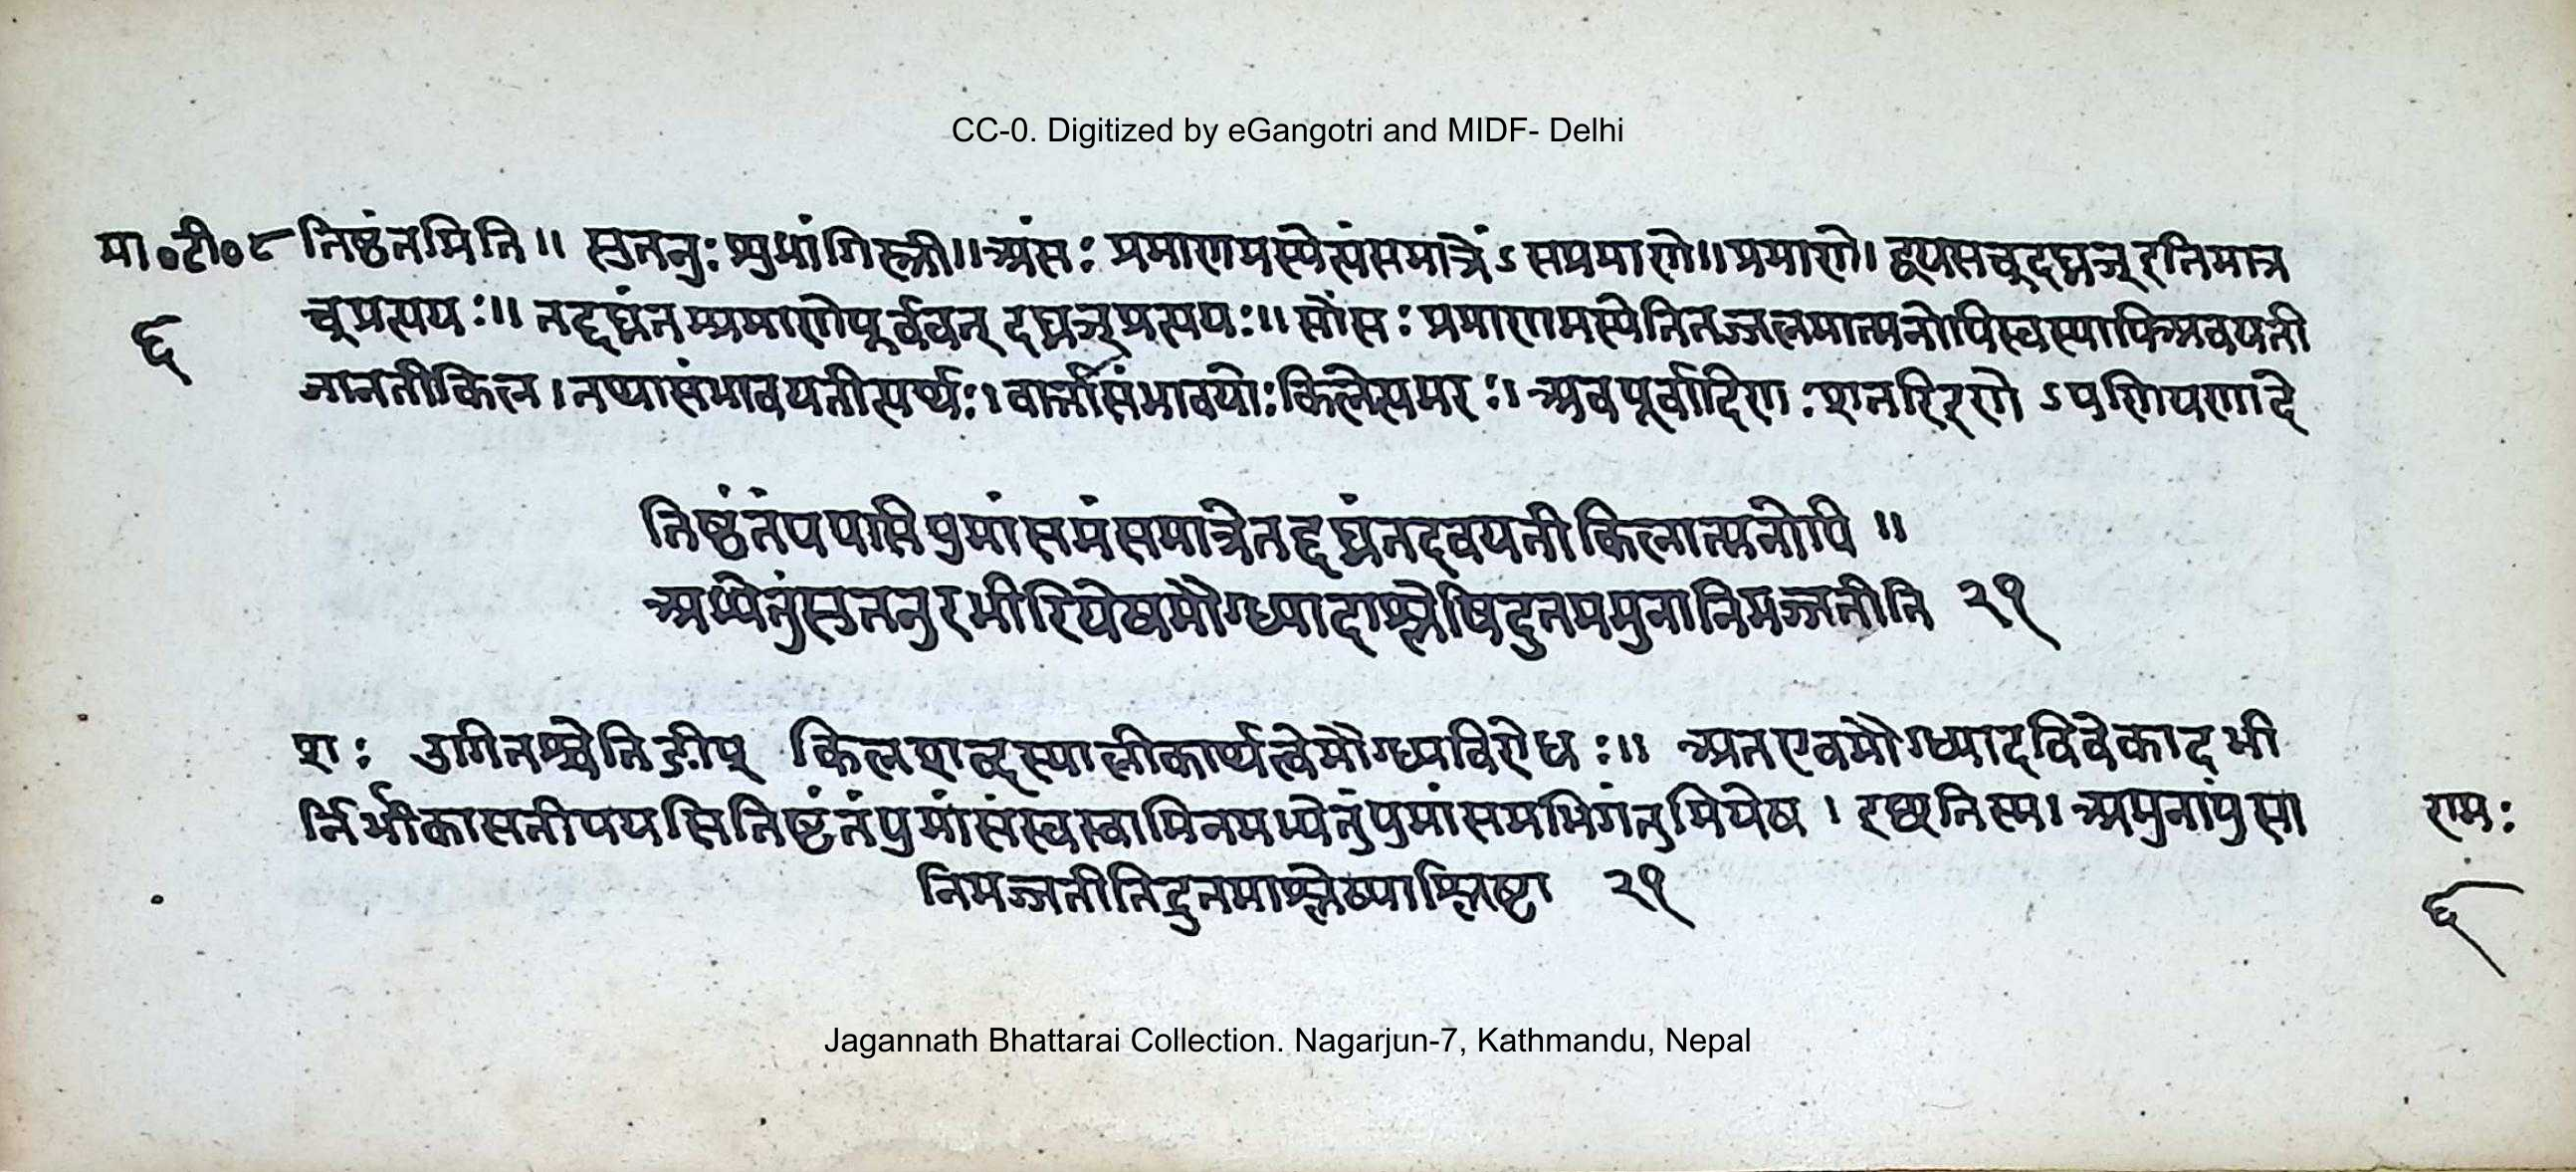 CC-0. Digitized by eGangotri and MIDF- Delhi
मा०टी०८ तिष्ठंतमिति॥ सुतनुः शुभांगिस्त्री॥ अंसः प्रमाणमस्येत्यंसमात्रें ऽसप्रमाणे॥ प्रमाणे। द्वयसच्दघ्नञ् इतिमात्र
६ च्प्रत्ययः॥ तद्दघ्नंतम्प्रमाणेपूर्ववत् दघ्नञ्प्रत्ययः॥ सोंसः प्रमाणमस्येतितज्जलमात्मनोपिस्वस्यापिअवयती
जानतीकिल। तथासंभावयतीत्यर्थः। वार्त्तासंभावयोः किलेत्यमरः। अवपूर्वादिण.शतरिइणो ऽपणियणादे
तिष्ठंतंपयसिपुमांसमंसमात्रेतद्दघ्नंतदवयतीकिलात्मनोपि॥
अभ्येतुंसुतनुरभीरियेषमौग्ध्यादाश्लेषिद्रुतममुनानिमज्जतीति २१
शः उगितश्चेतिङीप् किलशब्दस्यालीकार्थत्वेमौग्ध्यविरोधः॥ अतएवमौग्ध्यादविवेकादभी
र्निर्भीकासतीपयसितिष्ठंतंपुमांसंस्वस्वामिनमभ्येतुंपुमांसमभिगंतुमियेष। इछतिस्म। अमुनापुंसा
रामः
निमज्जतीतिद्रुतमाश्लेष्याश्लिष्टा २१
६
Jagannath Bhattarai Collection. Nagarjun-7, Kathmandu, Nepal